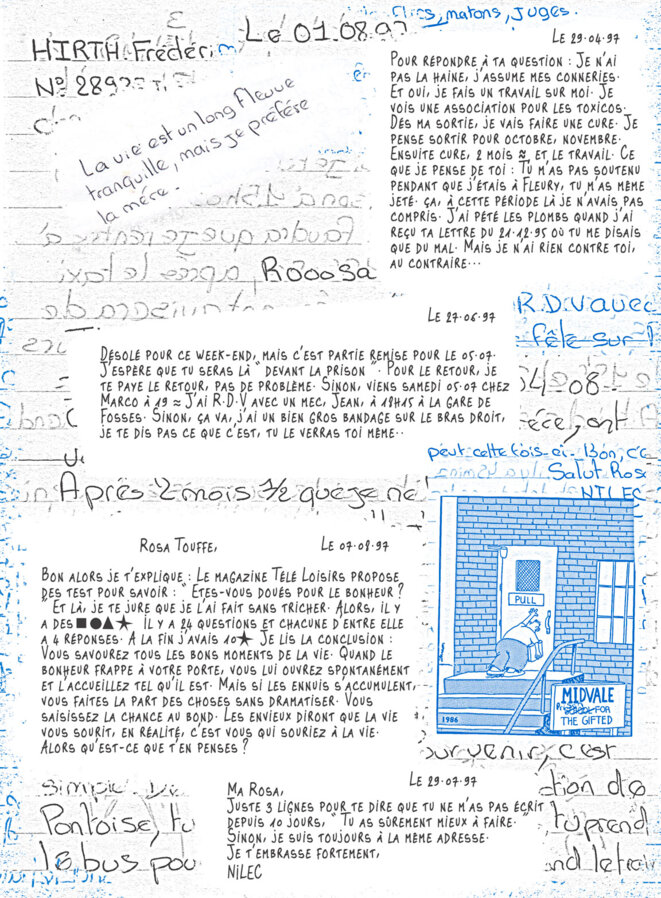 Flics, matons, juges.
Le 01.08.97
HIRTH Frédéric
N° 289
La vie est un long fleuve
tranquille, mais je préfére
la mére.
Le 29.04.97
Pour répondre à ta question : Je n'ai
pas la haine, j'assume mes conneries.
Et oui, je fais un travail sur moi. Je
vois une association pour les toxicos.
Dés ma sortie, je vais faire une cure. Je
pense sortir pour octobre, novembre.
Ensuite cure, 2 mois ≈ et le travail. Ce
que je pense de toi : Tu m'as pas soutenu
pendant que j'étais à Fleury, tu m'as même
jeté. Ça, à cette période là je n'avais pas
compris. J'ai pété les plombs quand j'ai
reçu ta lettre du 21.12.95 où tu me disais
que du mal. Mais je n'ai rien contre toi,
au contraire...
Rooosa
R.D.V avec
fête sur
Le 27.06.97
Désolé pour ce week-end, mais c'est partie remise pour le 05.07.
J'espère que tu seras là " devant la prison ". Pour le retour, je
te paye le retour, pas de problème. Sinon, viens samedi 05.07 chez
Marco à 19 ≈ J'ai R.D.V avec un mec, Jean, à 18h15 à la gare de
Fosses. Sinon, ça va, j'ai un bien gros bandage sur le bras droit,
je te dis pas ce que c'est, tu le verras toi même..
08
peut cette fois-ci. Bon, c'e
Salut Rose
NILEC
Après 2 mois 1/2 que je ne
Rosa Touffe,
Le 07.08.97
Bon alors je t'explique : Le magazine Télé Loisirs propose
des test pour savoir : " Êtes-vous doués pour le bonheur ?
" Et là, je te jure que je l'ai fait sans tricher. Alors, il y
a des ■●▲★ Il y a 24 questions et chacune d'entre elle
a 4 réponses. A la fin j'avais 10★ Je lis la conclusion :
Vous savourez tous les bons moments de la vie. Quand le
bonheur frappe à votre porte, vous lui ouvrez spontanément
et l'accueillez tel qu'il est. Mais si les ennuis s'accumulent,
vous faites la part des choses sans dramatiser. Vous
saisissez la chance au bond. Les envieux diront que la vie
vous sourit, en réalité, c'est vous qui souriez à la vie.
Alors qu'est-ce que t'en penses ?
PULL
MIDVALE
Prison
FOR
THE GIFTED
1986
venir, c'est
simple
Pontoise, tu
le bus pou
tion de
tu prend
Le 29.07.97
Ma Rosa,
Juste 3 lignes pour te dire que tu ne m'as pas écrit
depuis 10 jours, " Tu as sûrement mieux à faire. "
Sinon, je suis toujours à la même adresse.
Je t'embrasse fortement,
NiLEC